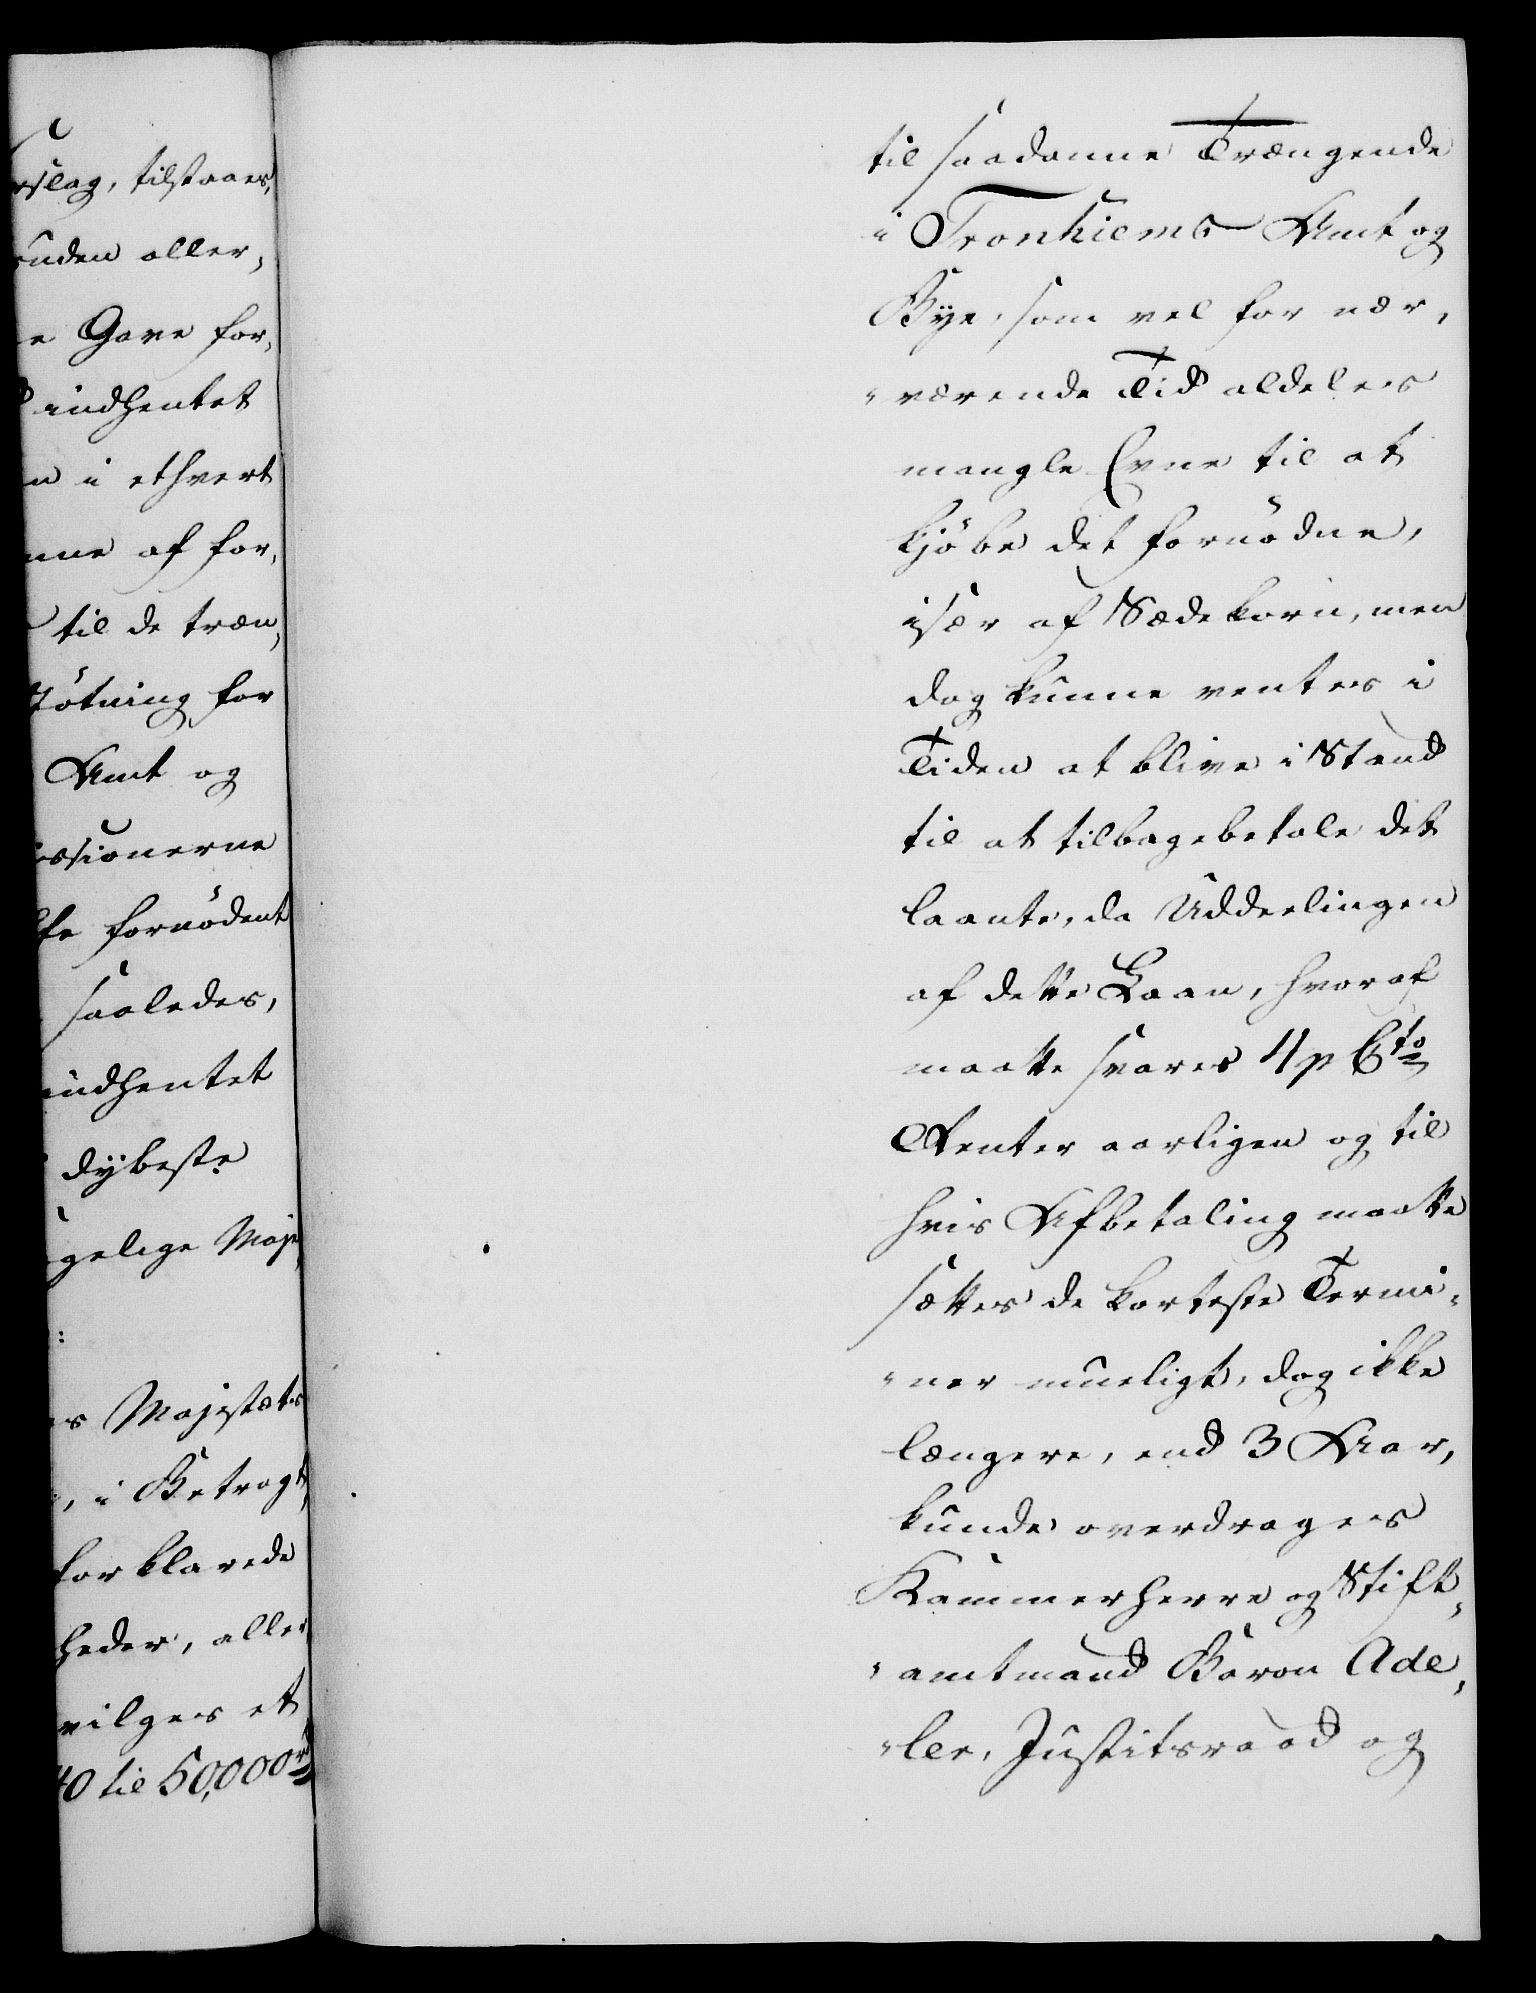 slag, tilstaaes,
uden aller,
e Gave for,
indhentet
n i ethvert
nne af for,
til de træn,
støtning for
Amt og
issionerne
lfe fornødent
saaledes,
indhentet
dybeste
gelige Maje,
:
s Majestæts
, i Betragt,
forklarede
heder, aller,
vilges et
40 til 50,000 rd
til saadanne Trængende
i Tronhiems Amt og
Bye, som vel for nær,
"værende Tid aldeles
mangle Evne til at
kjøbe det fornødne,
især af Sædekorn, men
dog kunne ventes i
Tiden at blive i Stand
til at tilbagebetale det
laante, da Uddeelingen
af dette Laan, hvoraf
maatte svares 4 p Cto
Renter aarligen og til
hvis Afbetaling maatte
sættes de korteste Termi"
"ner mueligt, dog ikke
længere, end 3 Aar,
kunde overdrages
Kammerherre og Stift,
"amtmand Baron Ade,
"ler, Justitsraad og